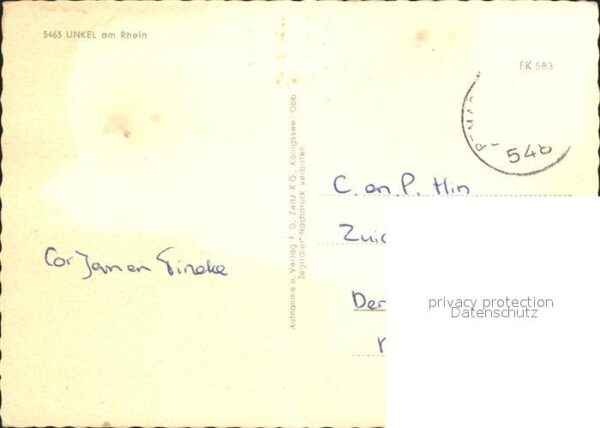 5463 UNKEL am Rhein
FK 583
548
Aufnahme u. Verlag F. G. Zeitz K G., Königssee Obb
Jeglicher Nachdruck verboten
C. en P. Hin
Zuid
Cor Jan en Tineke
Der
privacy protection
Datenschutz